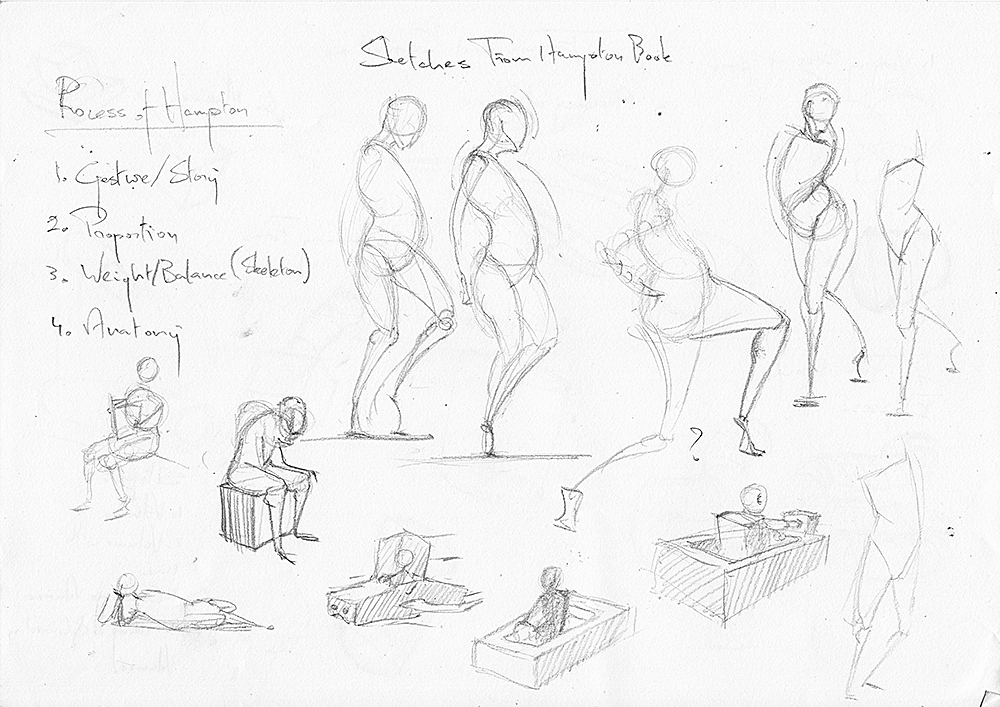 Sketches From Hampton Book
Process of Hampton
1. Gesture/Story
2. Proportion
3. Weight/Balance (Skeleton)
4. Anatomy
?